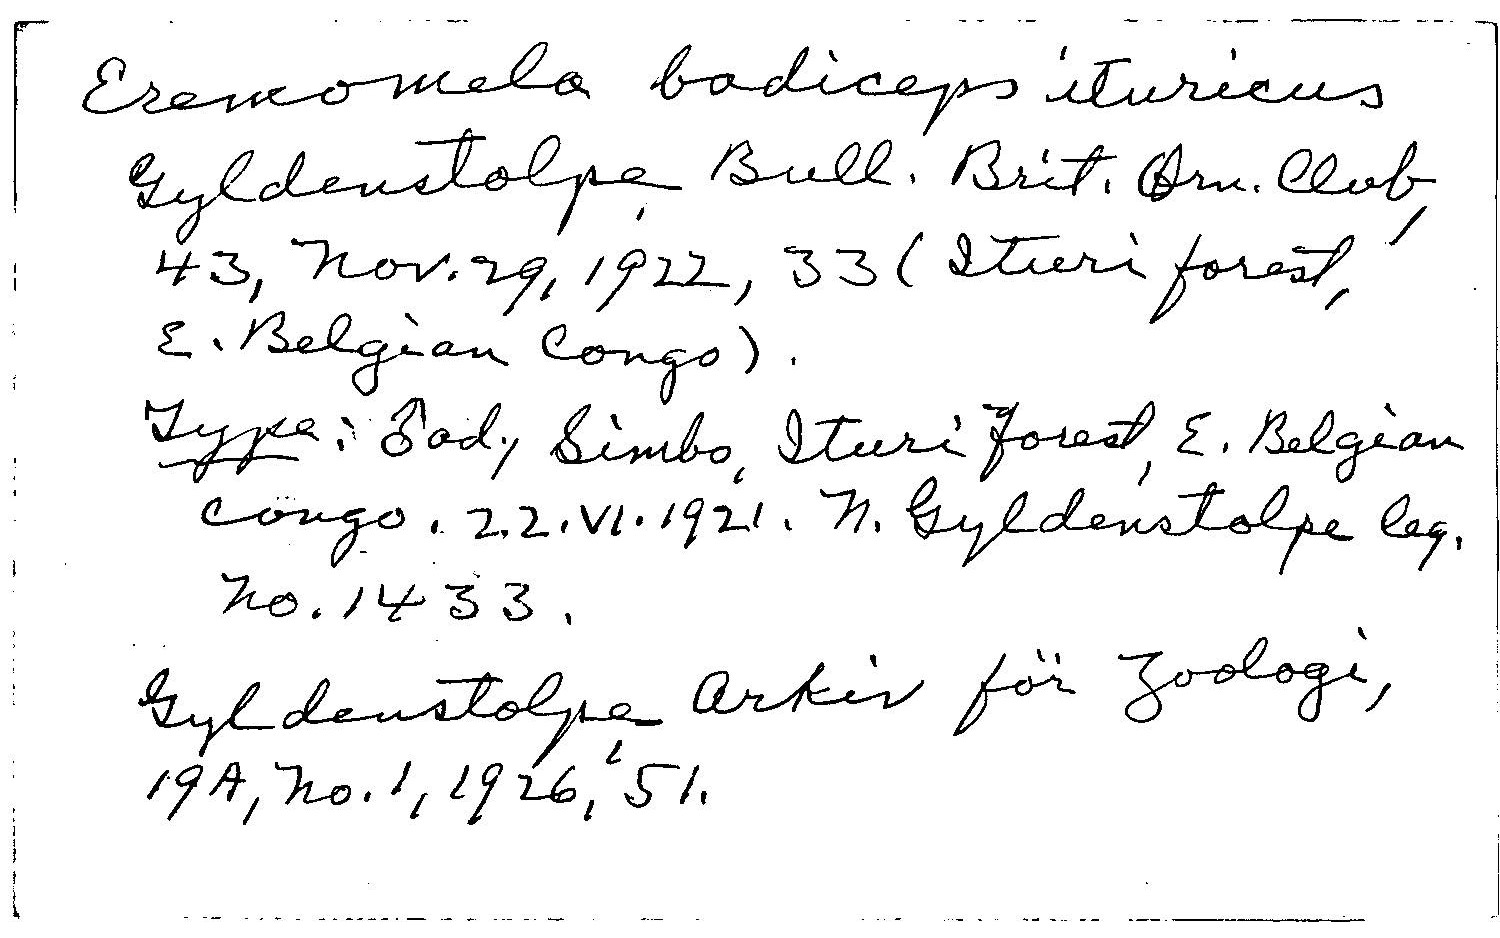 Eremomela badiceps ituricus
Gyldenstolpe, Bull. Brit. Orn. Club,
43, Nov. 29, 1922, 33 (Ituri forest,
E. Belgian Congo).
Type: ♂ ad., Simbo, Ituri Forest, E. Belgian
Congo. 22.VI.1921. N. Gyldenstolpe leg.
No. 1433.
Gyldenstolpe, Arkiv för Zoologi,
19A, No. 1, 1926, 51.